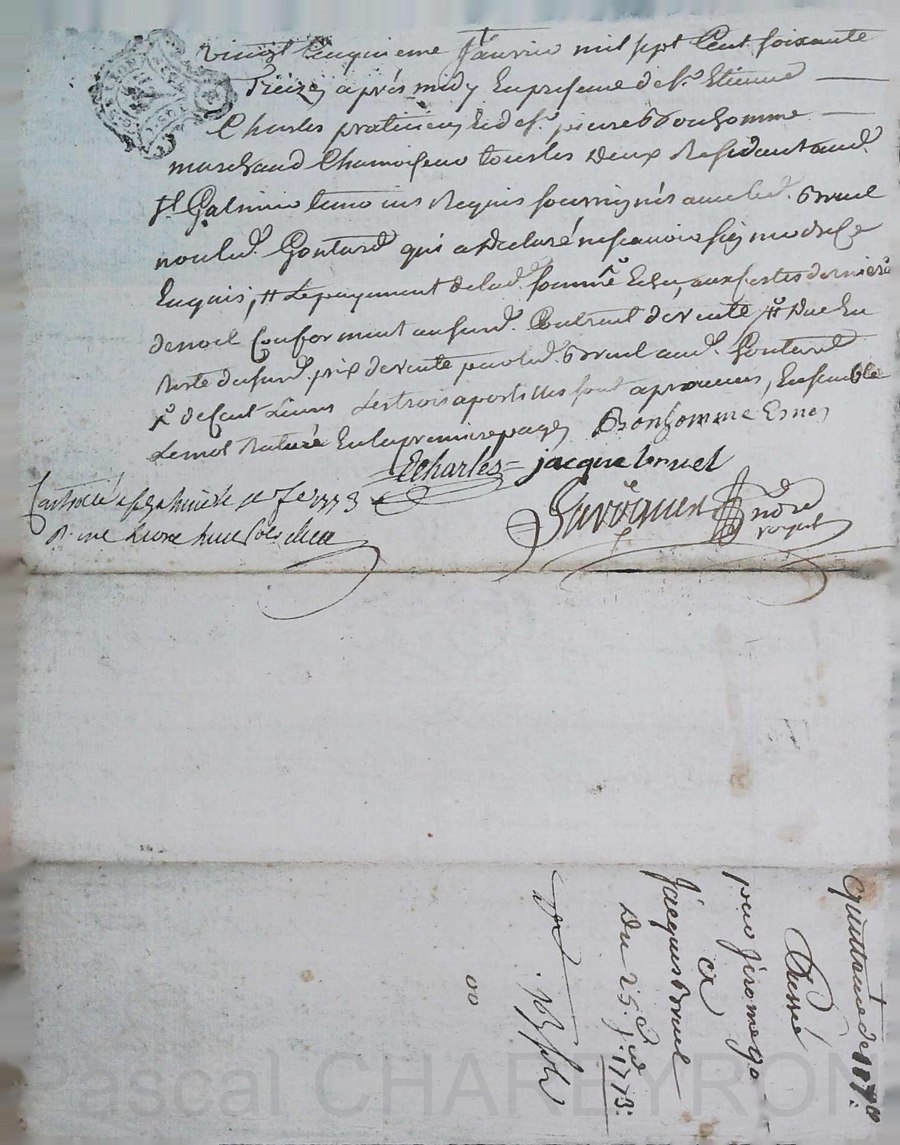 vingt cinquieme Janvier mil sept Cent soixante
Treize après midy En presence de sr. Etienne
Charles praticien Et de sr. pierre Bonhomme
marchand Chamoiseur tous les deux Residant aud.
st Galmier temoins Requis soussignés avec led. Bruel
non led. Gontard qui a declaré ne scavoir signer de ce
Enquis, # Le payement de lad. somme Echu, aux festes dernieres
de noel Conformement au susd. Contrat de vente # Due En
Reste du susd. prix de vente par led. Bruel aud. Gontard
de Cent Livres Les trois apostilles sont aprouvées, Ensemble
Le mot Raturé En la premiere page Bonhomme
Echarles jacque bruel
Controllé a st galmier le 1773
R. une livre
nore
royal
Quittance de 117
Passé
par Jérome
et
Jacques Bruel
Du 25. Jer. 1773:
00
Pascal CHAREYRON